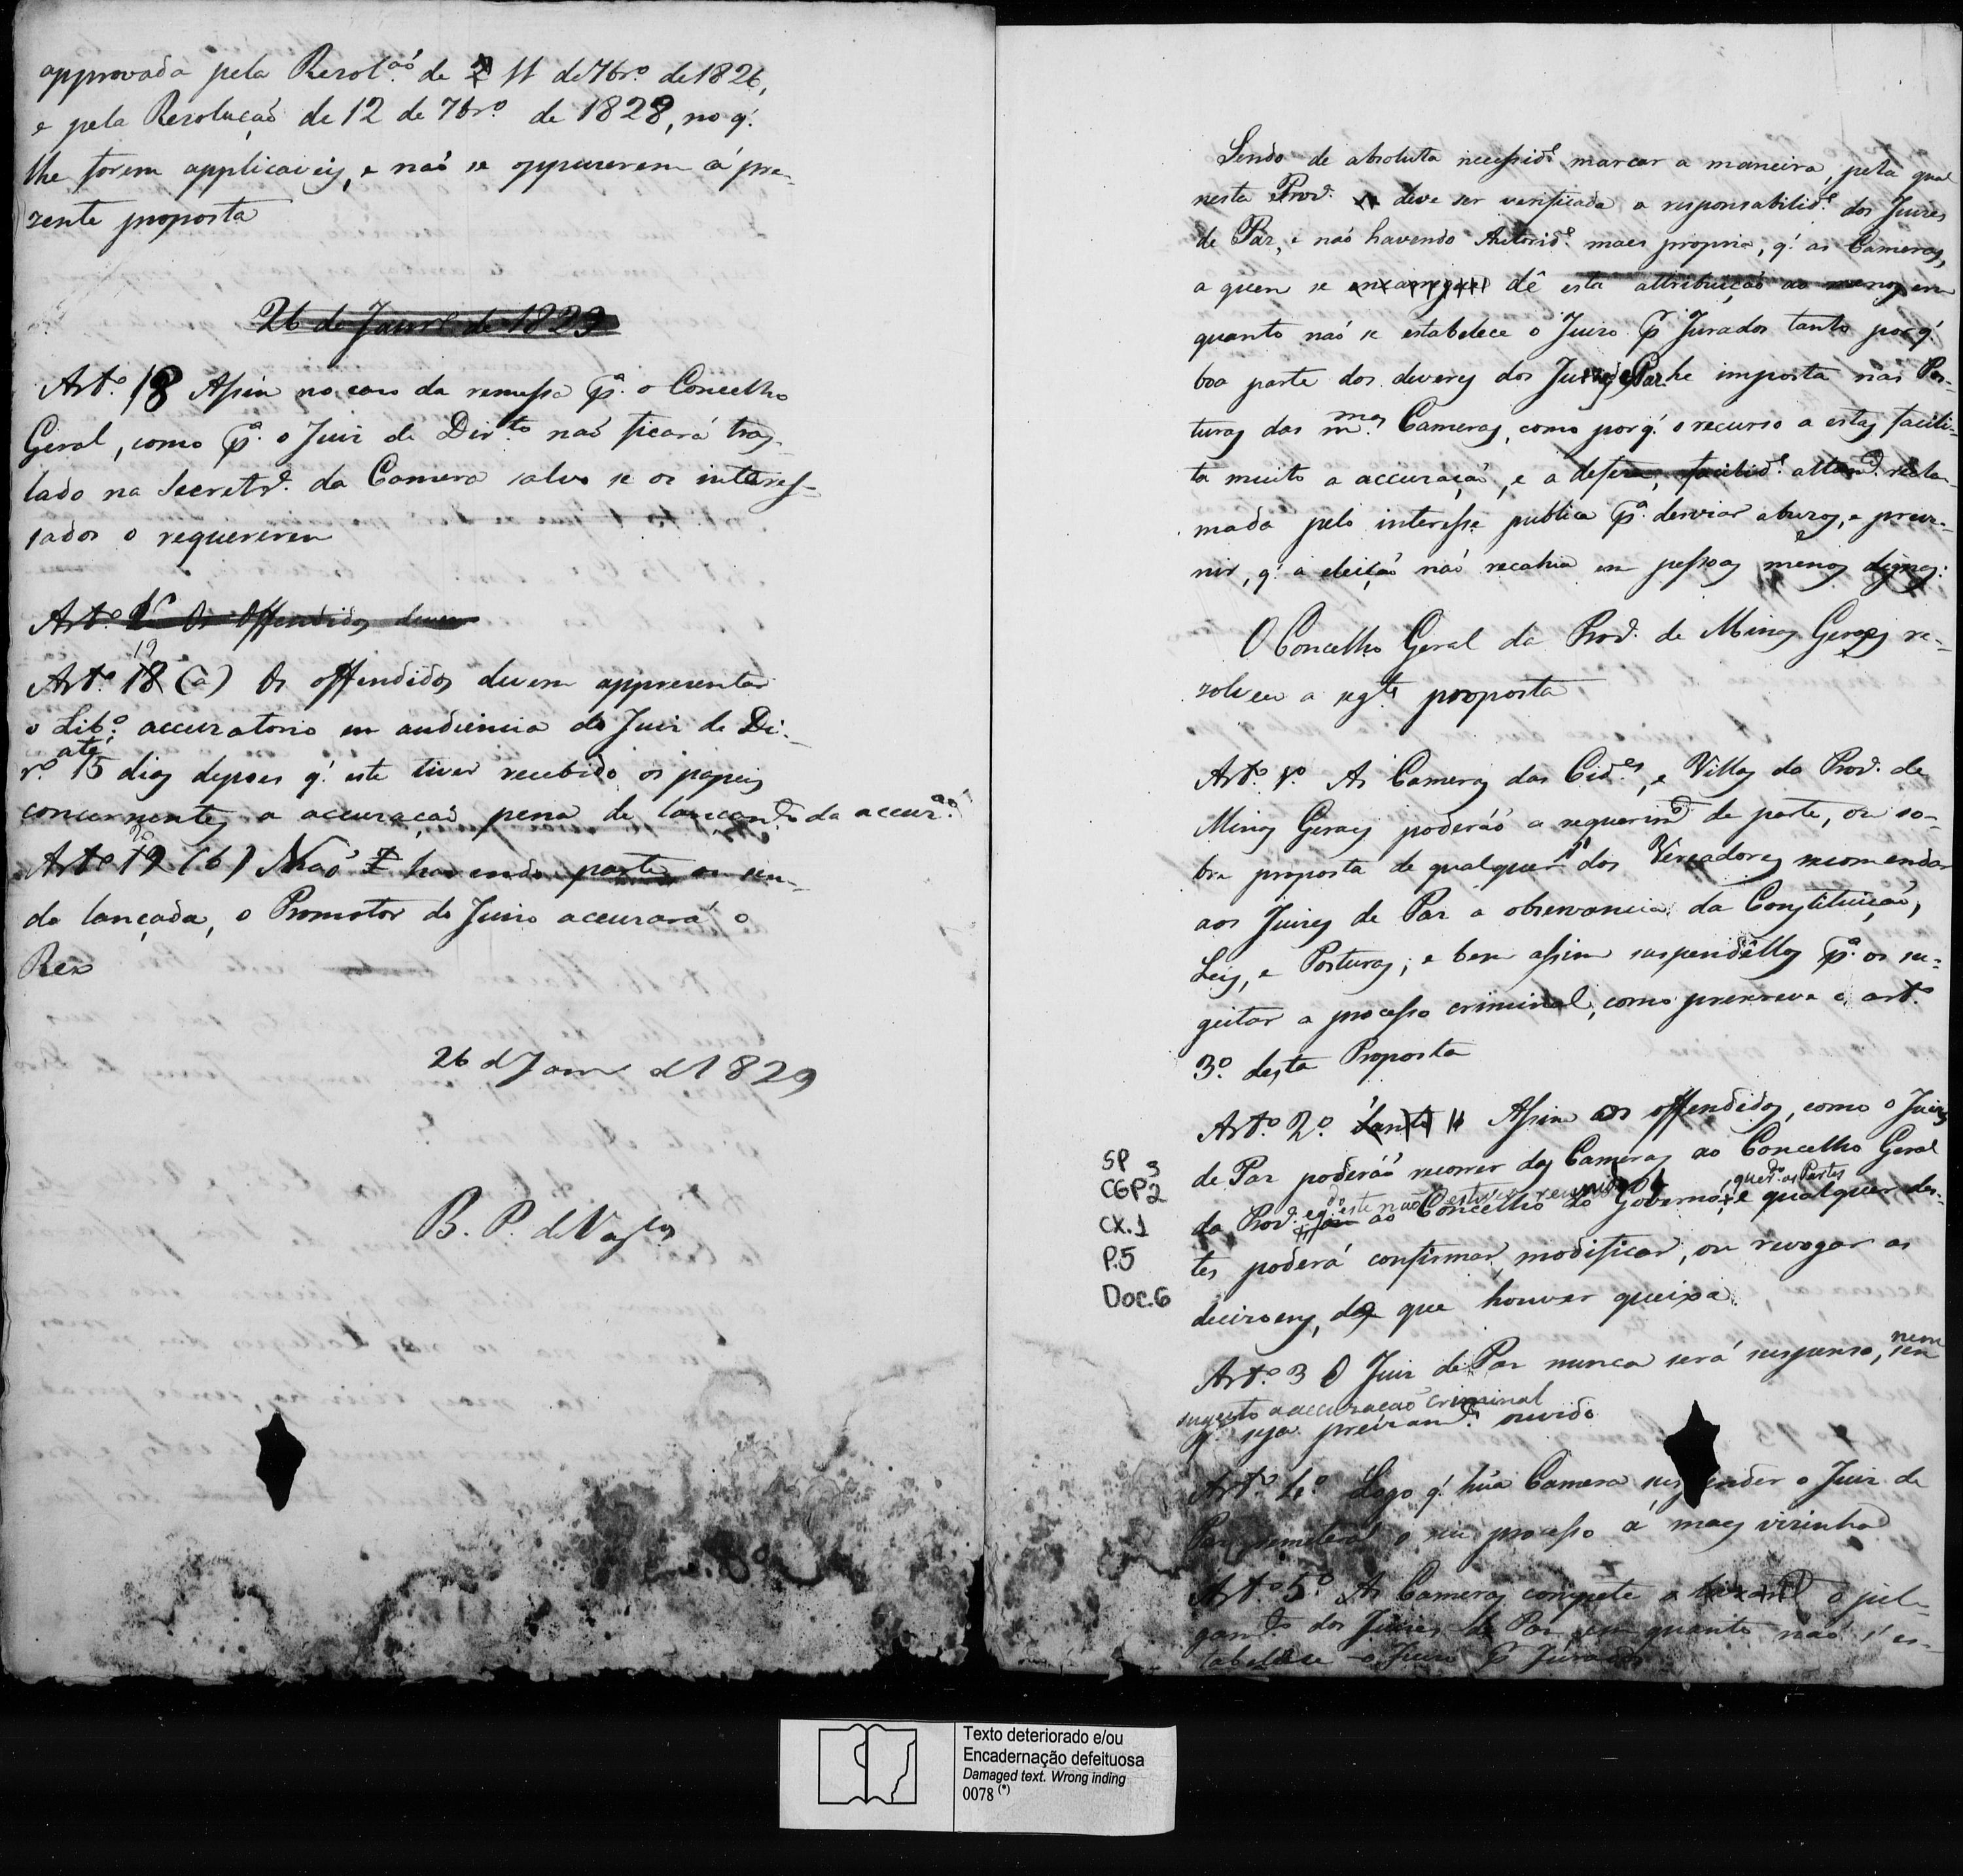 approvada pela Resol.ão de 11 de 7br.o de 1826,
e pela Resoluçaõ de 12 de 7br.o de 1828, no q.
lhe forem applicaveis, e naõ se oppuserem á pre-
zente proposta
26 de Janr.o de 1829
Art.o 18 Assim no caso da remessa p.a o Concelho
Geral, como p.a o Juiz de Dir.to naõ ficará tras-
lado na Secretr.a da Camera salvo se os interes-
sados o requererem
Art.o Os Offendidos devem
Art.o 19 18 (a) Os offendidos devem appresentar
o Lib.o accusatorio em audiencia do Juiz de Di-
r.o até 15 dias depois q. este tiver recebido os papeis
concernentes a accusaçaõ pena de lançam.to da accus.ão
Art.o 20 19 (b) Naõ havendo parte ou sen-
do lançada, o Promotor do Juizo accusará o
Reo
26 d Janr d 1829
B. P. de Vas.los
Sendo de absoluta necessid.e marcar a maneira, pela qual
nesta Prov.a deve ser verificada a responsabilid.e dos Juizes
de Paz, e naõ havendo Autorid.e mais propria, q. as Cameras,
a quem se encarregue dê esta attribuiçaõ ao menos em
quanto naõ se estabelece o Juizo p.r Jurados tanto porq.
boa parte dos deveres dos Juizes de Paz lhe imposta nas Pos-
turas das m.mas Cameras, como porq. o recurso a estas facili-
ta muito a accusaçaõ, e a defeza, facilid.e altam.e recla-
mada pelo interesse publico p.a desviar abusos, e preve-
nir, q. a eleiçaõ naõ recahia em pessoas menos dignas:
O Concelho Geral da Prov.a de Minas Geraes re-
solveu a seg.te proposta
Art.o 1.o As Cameras das Cid.es, e Villas da Prov.a de
Minas Geraes poderáõ a requerim.to de parte, ou so-
bre proposta de qualquer dos Vereadores recomendar
aos Juizes de Paz a observancia da Constituiçaõ,
Leis, e Posturas; e bem assim suspendêllos p.a os su-
geitar a processo criminal, como prescreve o art.o
3.o desta Proposta
Art.o 2.o Tanto Assim os offendidos, como o Juiz
de Paz poderáõ recorrer das Cameras ao Concelho Geral
da Prov.a e q.do este naõ estiver reunido ao Concelho do Governo, quer.do as Partes e qualquer des-
tes poderá confirmar, modificar, ou revogar as
decisoens, de que houver queixa.
SP
CGP 3 2
CX.1
P.5
Doc.6
Art.o 3 O Juiz de Paz nunca será suspenso, nem sem
sugeito a accusaçaõ criminal
q. seja previam.te ouvido
Art.o 4.o Logo q. hũa Camera suspender o Juiz de
Paz remeterá o seu processo á mais vizinha
Art.o 5.o As Cameras compete o jul-
gam.to dos Juizes de Paz em quanto naõ s'es-
tabelece o Juizo p.r Jurados
Texto deteriorado e/ou
Encadernação defeituosa
Damaged text. Wrong inding
0078 (*)